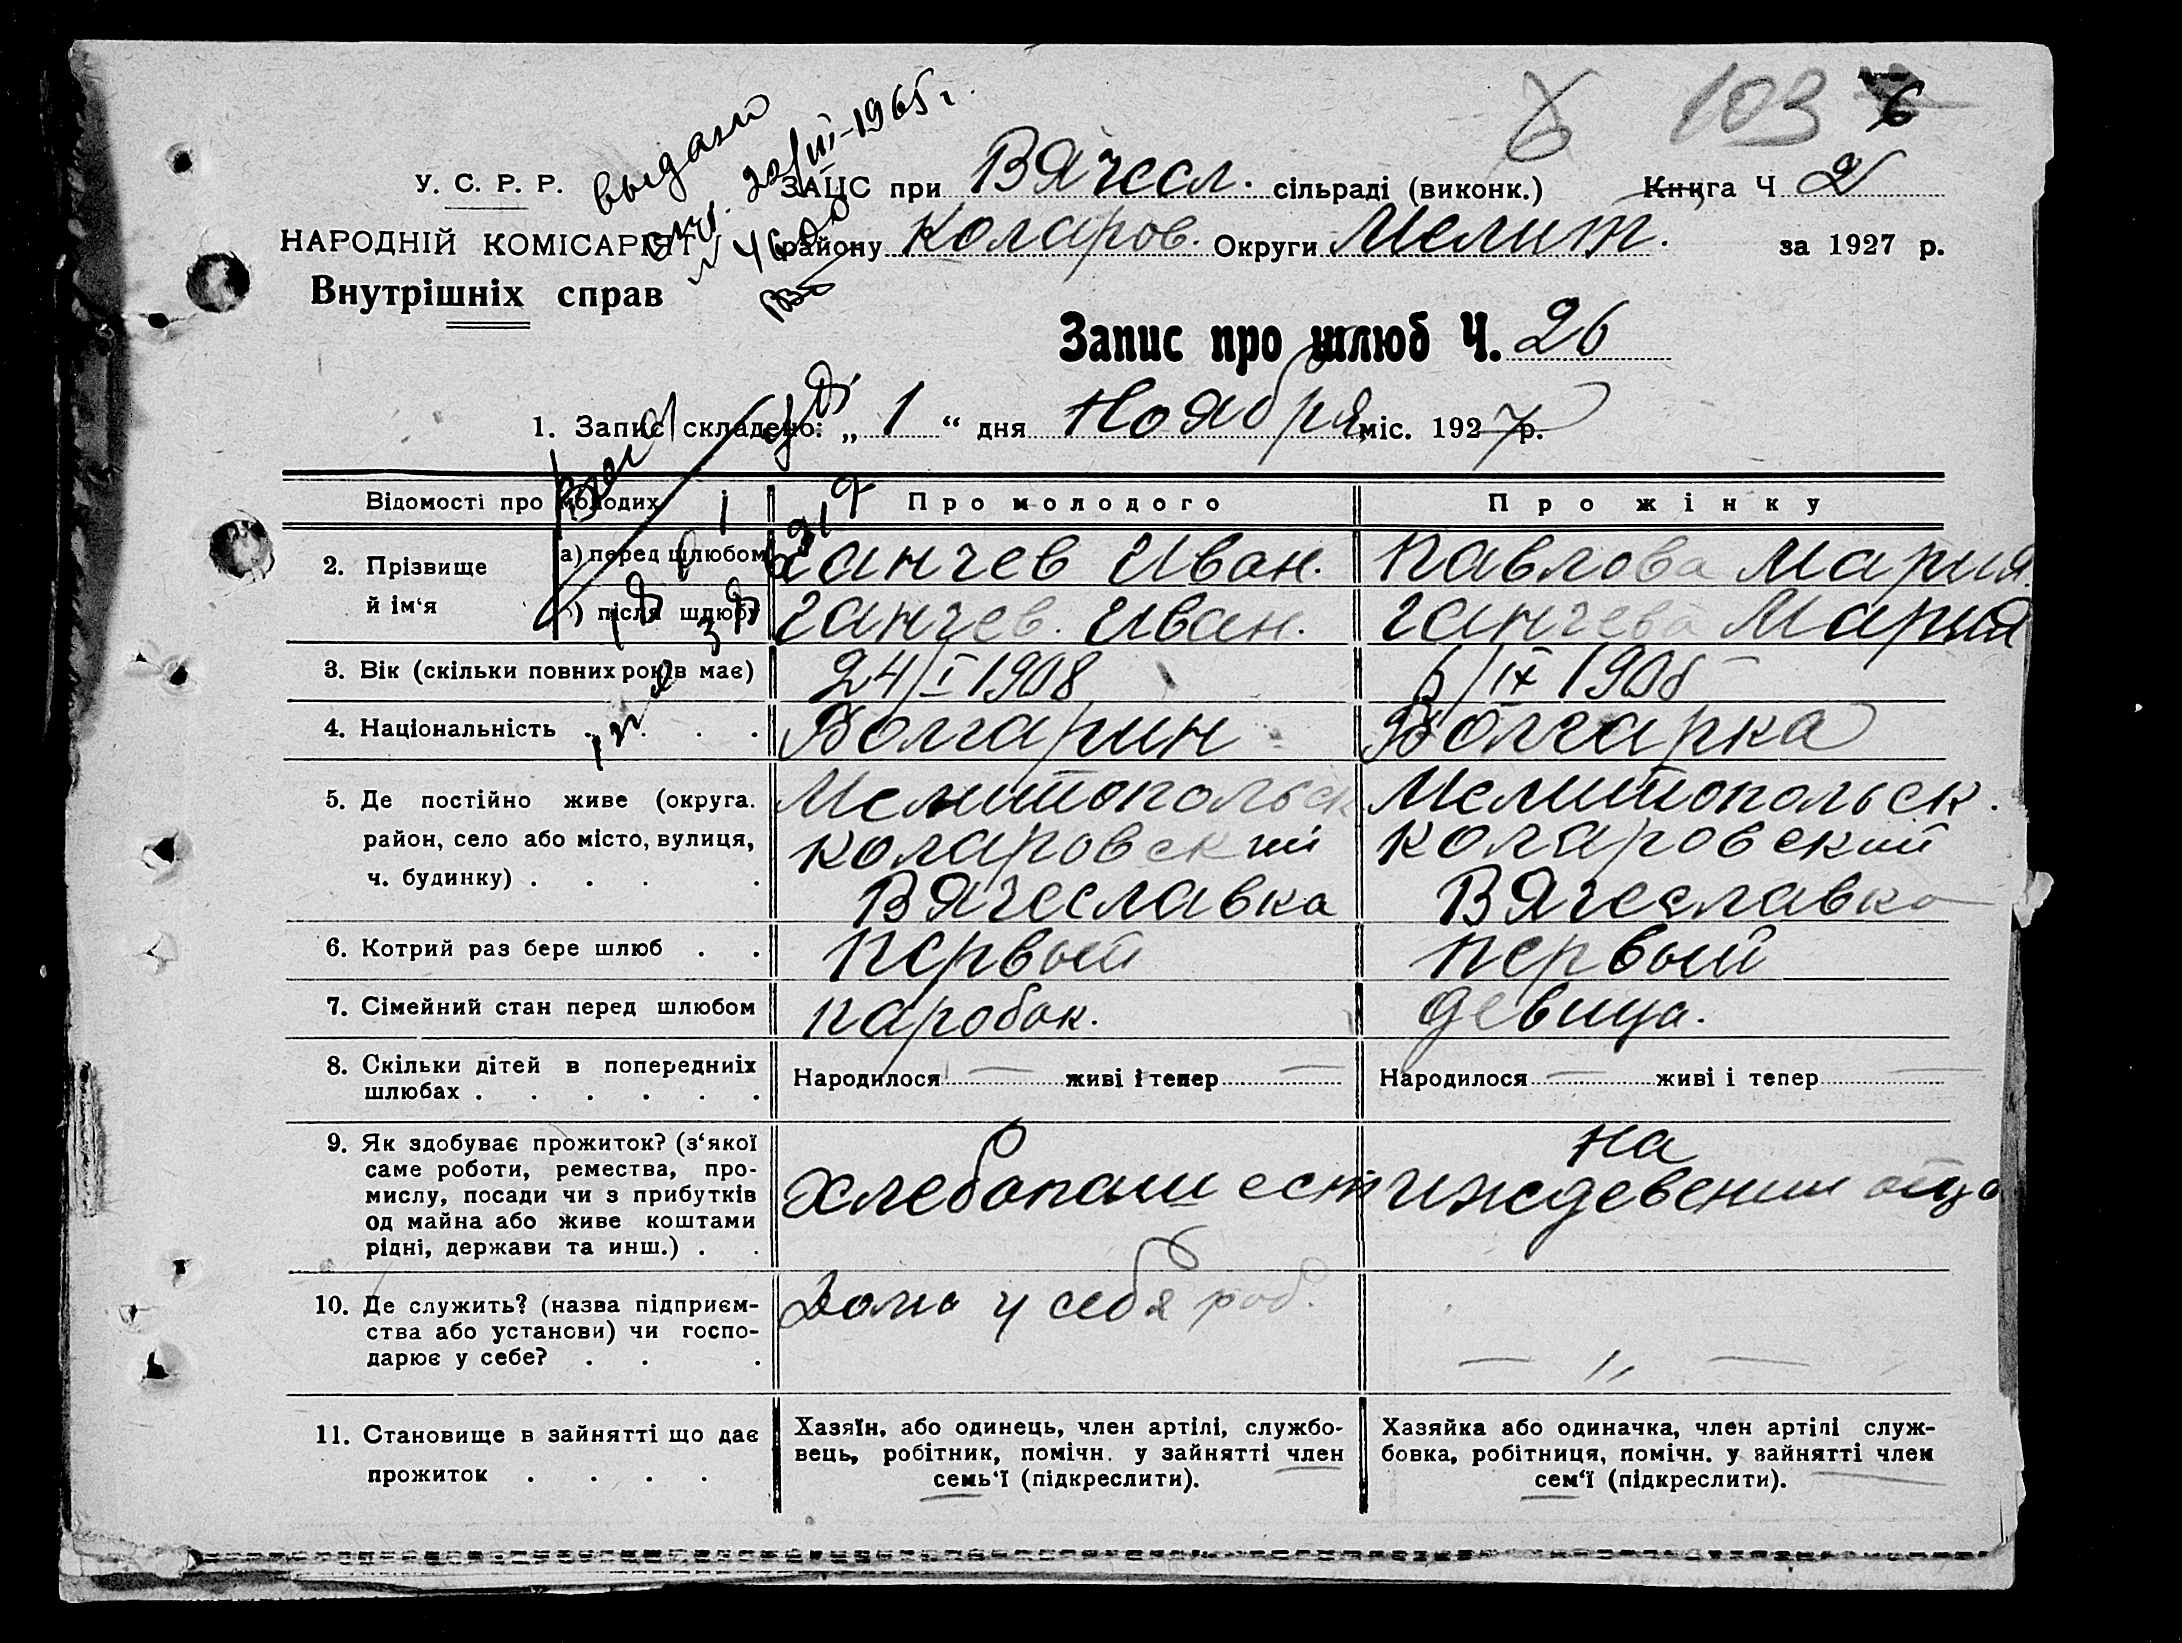 103 6
У. С. Р. Р.
выдано
20/III-1965 г.
ЗАЦС при Вячесл. сільраді (виконк.) Книга Ч 2
НАРОДНІЙ КОМІСАРІЯТ району Коларов. Округи Мелит. за 1927 р.
Внутрішніх справ
Запис про шлюб Ч. 26
1. Запис складено: „ 1 “ дня Ноября міс. 1927 р.
Відомості про молодих Про молодого Про жінку
2. Прізвище й ім‘я
а) перед шлюбом Ганчев Иван. Павлова Мария.
) після шлюбу Ганчев. Иван. Ганчева Мария
3. Вік (скільки повних років має) 24/I 1908 6/IX 1906
4. Національність . . . . Болгарин Болгарка
5. Де постійно живе (округа. Мелитопольск Мелитопольск.
район, село або місто, вулиця, Коларовский Коларовский
ч. будинку) . . . . Вячеславка Вячеславка
6. Котрий раз бере шлюб . . первый первый
7. Сімейний стан перед шлюбом паробок. девица.
8. Скільки дітей в попередниіх Народилося — живі і тепер — Народилося — живі і тепер —
шлюбах . . . . . .
9. Як здобуває прожиток? (з‘якої на
саме роботи, ремества, про-
мислу, посади чи з прибутків хлебопашест иждевении отца
од майна або живе коштами
рідні, держави та инш.) . .
10. Де служить? (назва підприєм- Дома у себя раб.
ства або установи) чи госпо-
дарює у себе? . . . — „ —
11. Становище в зайнятті що дає
прожиток . . . .
Хазяїн, або одинець, член артілі, службо-
вець, робітник, помічн. у зайнятті член
семь‘ї (підкреслити).
Хазяйка або одиначка, член артілі служ-
бовка, робітниця, помічн. у зайнятті член
сем‘ї (підкреслити).